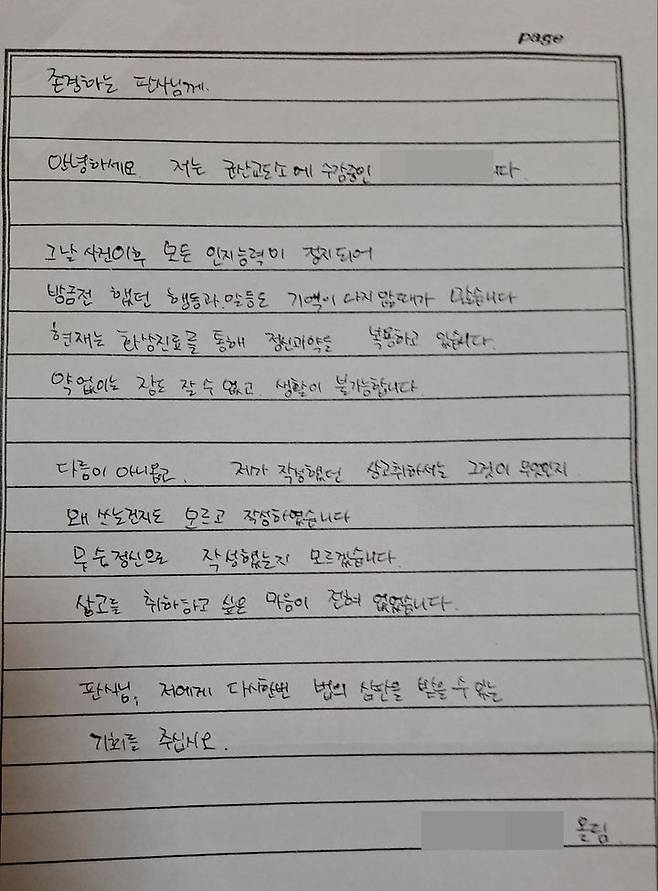 page
존경하는 판사님께.
안녕하세요. 저는 군산교도소에 수감중인
그날 사건이후 모든 인지능력이 정지되어
방금전 했던 행동과 말들도 기억이 나지 않을때가 많습니다
현재는 화상진료를 통해 정신과약을 복용하고 있습니다.
약 없이는 잠도 잘 수 없고, 생활이 불가능합니다
다름이 아니옵고, 제가 작성했던 상고취하서는 그것이 무엇인지
왜 쓰는건지도 모르고 작성하였습니다
무슨정신으로 작성했는지 모르겠습니다.
상고를 취하하고 싶은 마음이 전혀 없었습니다.
판사님, 저에게 다시한번 법의 심판을 받을 수 있는
기회를 주십시오.
올림.